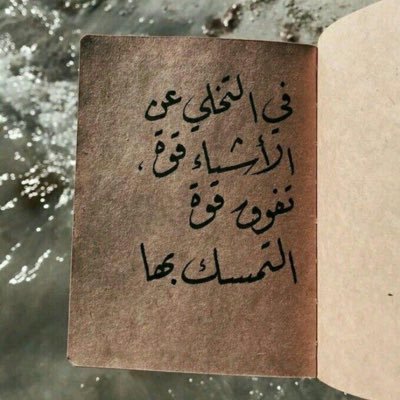 في التخلي عن
الأشياء قوة،
تفوق قوة
التمسك بها